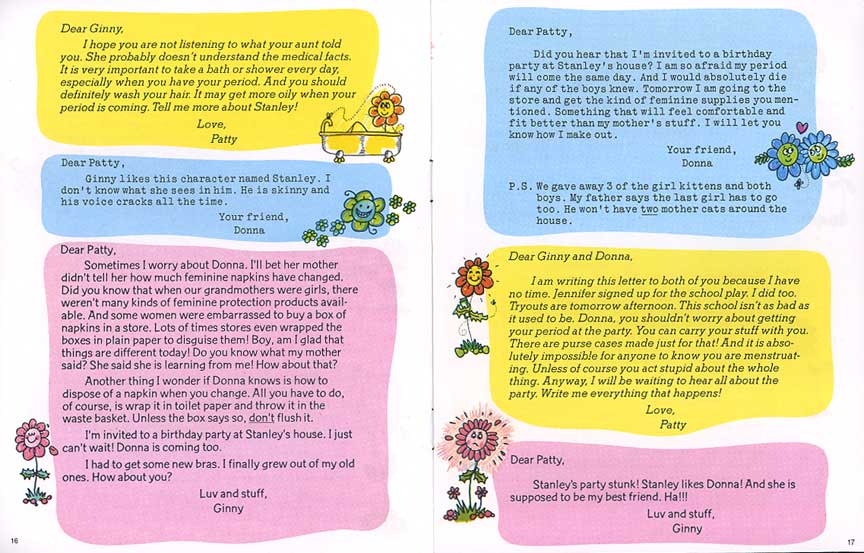 Dear Ginny,
I hope you are not listening to what your aunt told
you. She probably doesn't understand the medical facts.
It is very important to take a bath or shower every day,
especially when you have your period. And you should
definitely wash your hair. It may get more oily when your
period is coming. Tell me more about Stanley!
Love,
Patty
Dear Patty,
Ginny likes this character named Stanley. I
don't know what she sees in him. He is skinny and
his voice cracks all the time.
Your friend,
Donna
Dear Patty,
Sometimes I worry about Donna. I'll bet her mother
didn't tell her how much feminine napkins have changed.
Did you know that when our grandmothers were girls, there
weren't many kinds of feminine protection products avail-
able. And some women were embarrassed to buy a box of
napkins in a store. Lots of times stores even wrapped the
boxes in plain paper to disguise them! Boy, am I glad that
things are different today! Do you know what my mother
said? She said she is learning from me! How about that?
Another thing I wonder if Donna knows is how to
dispose of a napkin when you change. All you have to do,
of course, is wrap it in toilet paper and throw it in the
waste basket. Unless the box says so, don't flush it.
I'm invited to a birthday party at Stanley's house. I just
can't wait! Donna is coming too.
I had to get some new bras. I finally grew out of my old
ones. How about you?
Luv and stuff,
Ginny
16
Dear Patty,
Did you hear that I'm invited to a birthday
party at Stanley's house? I am so afraid my period
will come the same day. And I would absolutely die
if any of the boys knew. Tomorrow I am going to the
store and get the kind of feminine supplies you men-
tioned. Something that will feel comfortable and
fit better than my mother's stuff. I will let you
know how I make out.
Your friend,
Donna
P.S. We gave away 3 of the girl kittens and both
boys. My father says the last girl has to go
too. He won't have two mother cats around the
house.
Dear Ginny and Donna,
I am writing this letter to both of you because I have
no time. Jennifer signed up for the school play. I did too.
Tryouts are tomorrow afternoon. This school isn't as bad as
it used to be. Donna, you shouldn't worry about getting
your period at the party. You can carry your stuff with you.
There are purse cases made just for that! And it is abso-
lutely impossible for anyone to know you are menstruat-
ing. Unless of course you act stupid about the whole
thing. Anyway, I will be waiting to hear all about the
party. Write me everything that happens!
Love,
Patty
Dear Patty,
Stanley's party stunk! Stanley likes Donna! And she is
supposed to be my best friend. Ha!!!
Luv and stuff,
Ginny
17